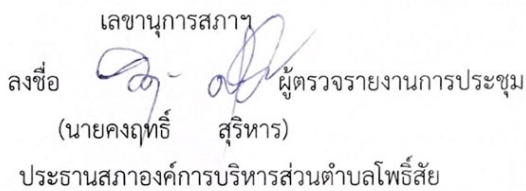 เลขานุการสภาฯ
ลงชื่อ ผู้ตรวจรายงานการประชุม
(นายคงฤทธิ์ สุริหาร)
ประธานสภาองค์การบริหารส่วนตำบลโพธิ์สัย